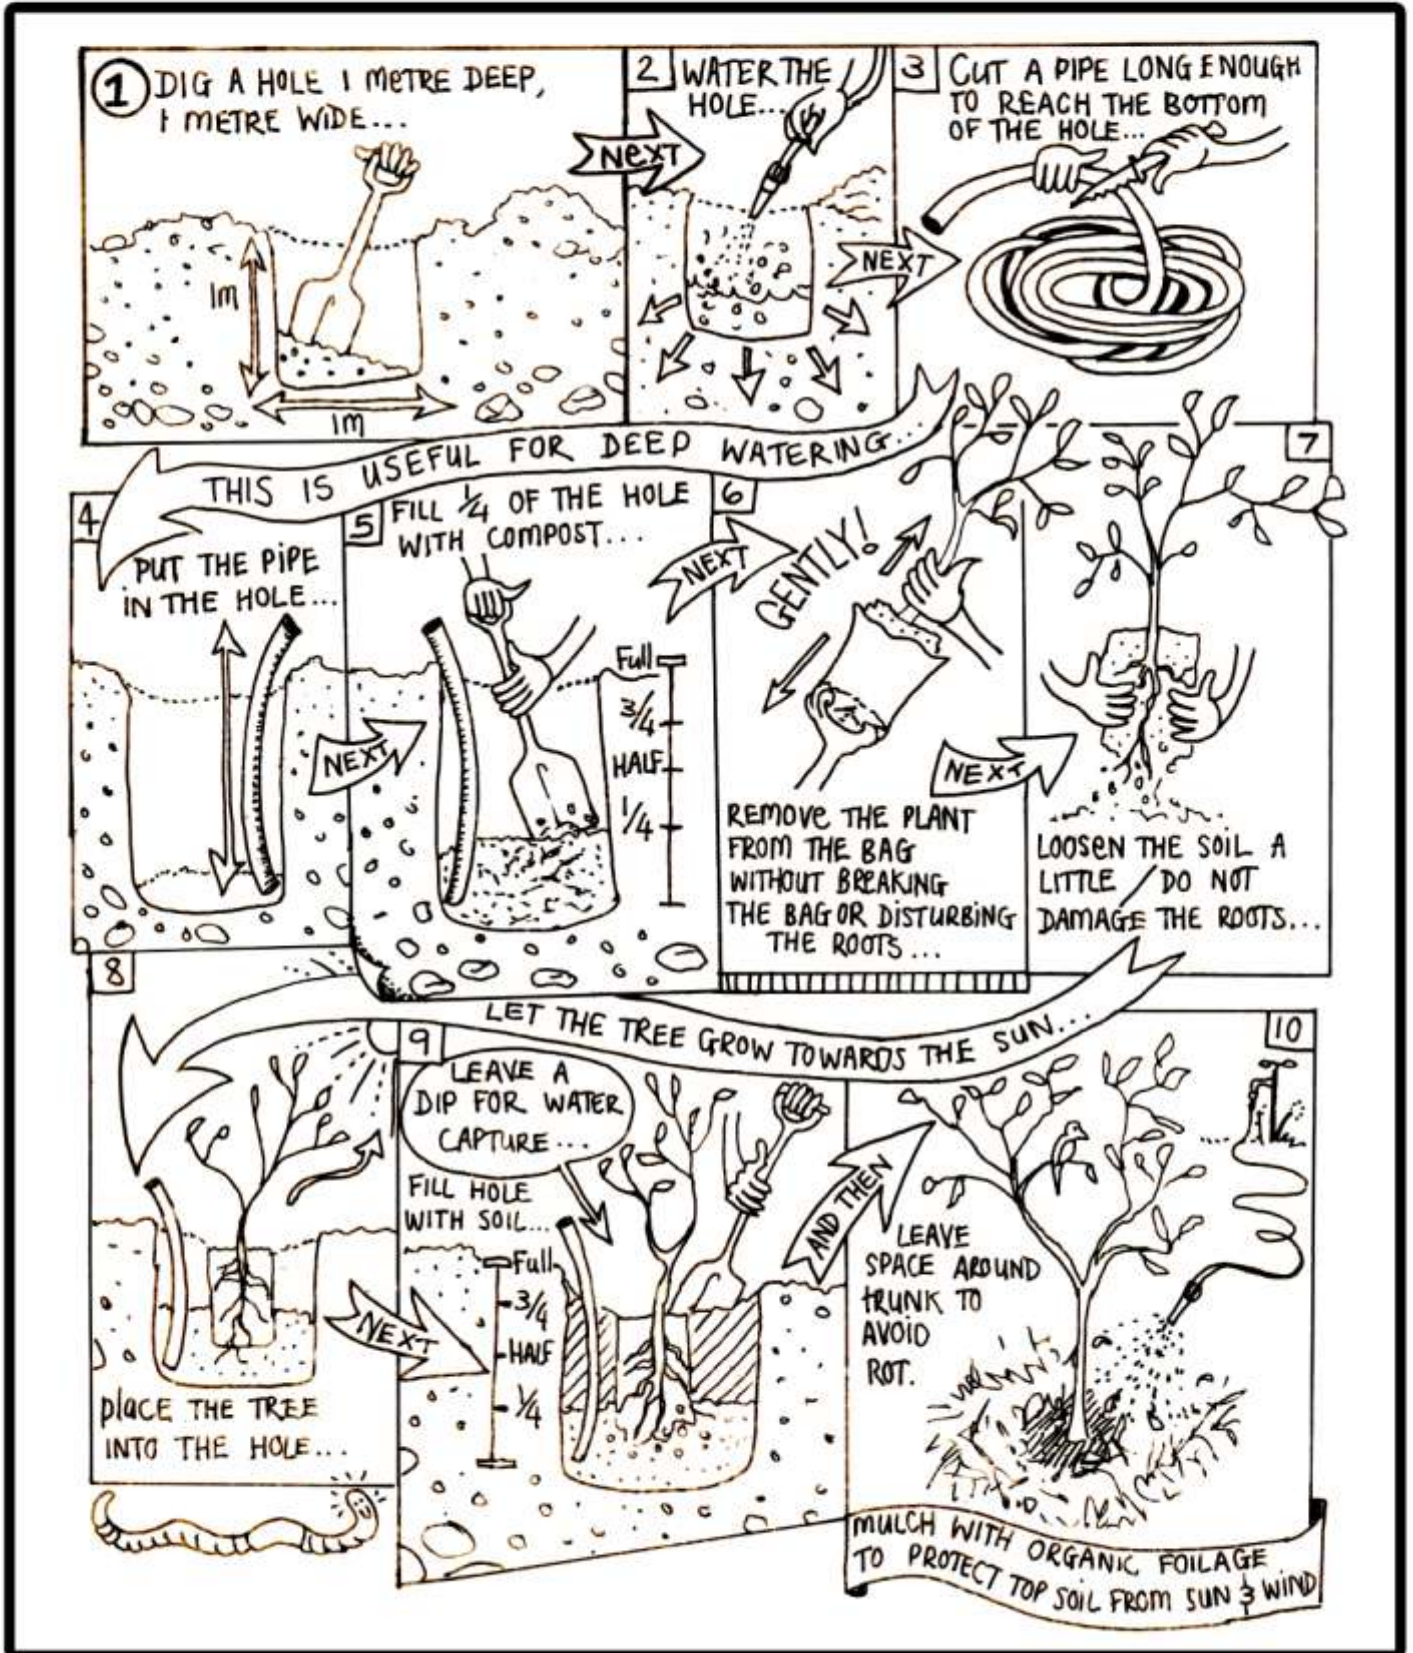 1 DIG A HOLE 1 METRE DEEP,
1 METRE WIDE...
1m
1m
NEXT
2 WATER THE
HOLE...
NEXT
3 CUT A PIPE LONG ENOUGH
TO REACH THE BOTTOM
OF THE HOLE...
THIS IS USEFUL FOR DEEP WATERING...
4
PUT THE PIPE
IN THE HOLE...
NEXT
5 FILL 1/4 OF THE HOLE
WITH COMPOST...
Full
3/4
HALF
1/4
NEXT
6
GENTLY!
REMOVE THE PLANT
FROM THE BAG
WITHOUT BREAKING
THE BAG OR DISTURBING
THE ROOTS...
NEXT
7
LOOSEN THE SOIL A
LITTLE / DO NOT
DAMAGE THE ROOTS...
LET THE TREE GROW TOWARDS THE SUN...
8
PLACE THE TREE
INTO THE HOLE...
NEXT
9
LEAVE A
DIP FOR WATER
CAPTURE...
FILL HOLE
WITH SOIL...
Full
3/4
HALF
1/4
AND THEN
10
LEAVE
SPACE AROUND
TRUNK TO
AVOID
ROT.
MULCH WITH ORGANIC FOILAGE
TO PROTECT TOP SOIL FROM SUN & WIND